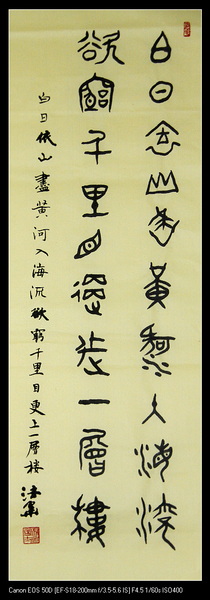 白日依山盡黃河入海流
欲窮千里目更上一層樓
白日依山盡黃河入海流欲窮千里目更上一層樓
Canon EOS 50D [EF-S18-200mm f/3.5-5.6 IS] F4.5 1/60s ISO400